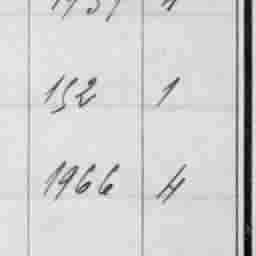 152 1
1966 4